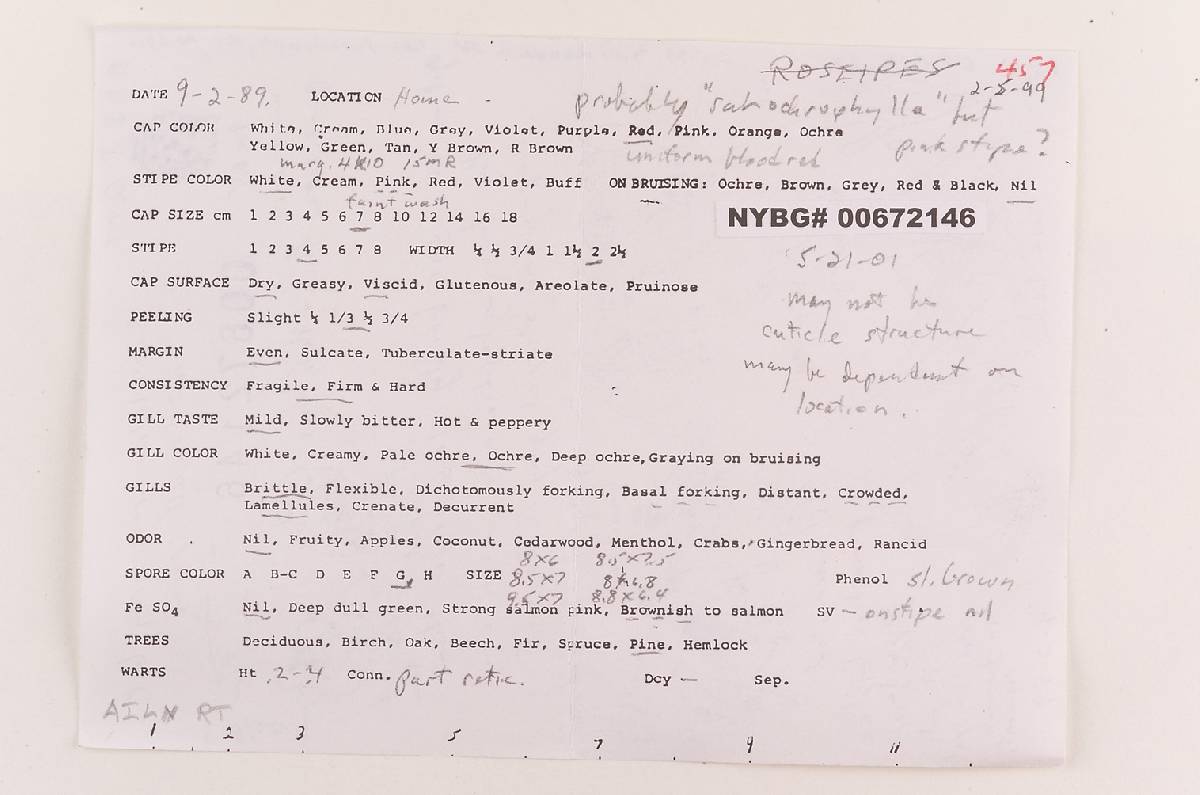 ROSEIPES 457
DATE 9-2-89. LOCATION Home - 2-5-99
probably "subochrophylla" but
CAP COLOR White, Cream, Blue, Grey, Violet, Purple, Red, Pink, Orange, Ochre
Yellow, Green, Tan, Y Brown, R Brown uniform blood red pink stipe?
marg. 4K10 15MR
STIPE COLOR White, Cream, Pink, Red, Violet, Buff ON BRUISING: Ochre, Brown, Grey, Red & Black, Nil
faint wash
CAP SIZE cm 1 2 3 4 5 6 7 8 10 12 14 16 18 NYBG# 00672146
STIPE 1 2 3 4 5 6 7 8 WIDTH ¼ ½ 3/4 1 1½ 2 2½
5-21-01
CAP SURFACE Dry, Greasy, Viscid, Glutenous, Areolate, Pruinose
may not be
PEELING Slight ¼ 1/3 ½ 3/4
cuticle structure
MARGIN Even, Sulcate, Tuberculate-striate
may be dependent on
CONSISTENCY Fragile, Firm & Hard
location.
GILL TASTE Mild, Slowly bitter, Hot & peppery
GILL COLOR White, Creamy, Pale ochre, Ochre, Deep ochre, Graying on bruising
GILLS Brittle, Flexible, Dichotomously forking, Basal forking, Distant, Crowded,
Lamellules, Crenate, Decurrent
ODOR . Nil, Fruity, Apples, Coconut, Cedarwood, Menthol, Crabs, Gingerbread, Rancid
8x6 8.5x7.5
SPORE COLOR A B-C D E F G H SIZE 8.5x7 8x6.8 Phenol sl. brown
9.5x7 8.8x6.4
Fe SO4 Nil, Deep dull green, Strong salmon pink, Brownish to salmon SV - on stipe nil
TREES Deciduous, Birch, Oak, Beech, Fir, Spruce, Pine, Hemlock
WARTS Ht .2-.4 Conn. part retic. Dcy - Sep.
RT
1 2 3 5 7 9 11